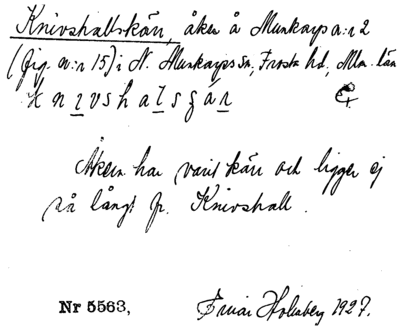 Knivshallskärr, åker å Munkarps n:r 2
(fig. n:r 15) i N. Munkarps sn, Frosta hd, Mlm. län
Åkern har varit kärr och ligger ej
så långt fr. Knivshall.
Nr 5563, Ernar Holmberg 1927.